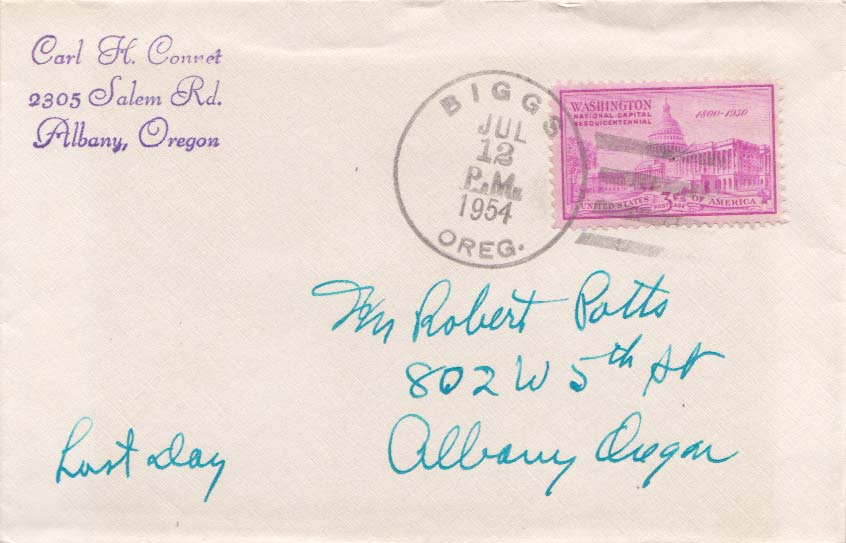 Carl H. Conret
2305 Salem Rd.
Albany, Oregon
BIGGS
JUL
12
P.M.
1954
OREG.
WASHINGTON
NATIONAL CAPITAL
SESQUICENTENNIAL
1800-1950
UNITED STATES 3¢ OF AMERICA
POSTAGE
Mr Robert Potts
802 W 5th St
Albany Oregon
Last Day